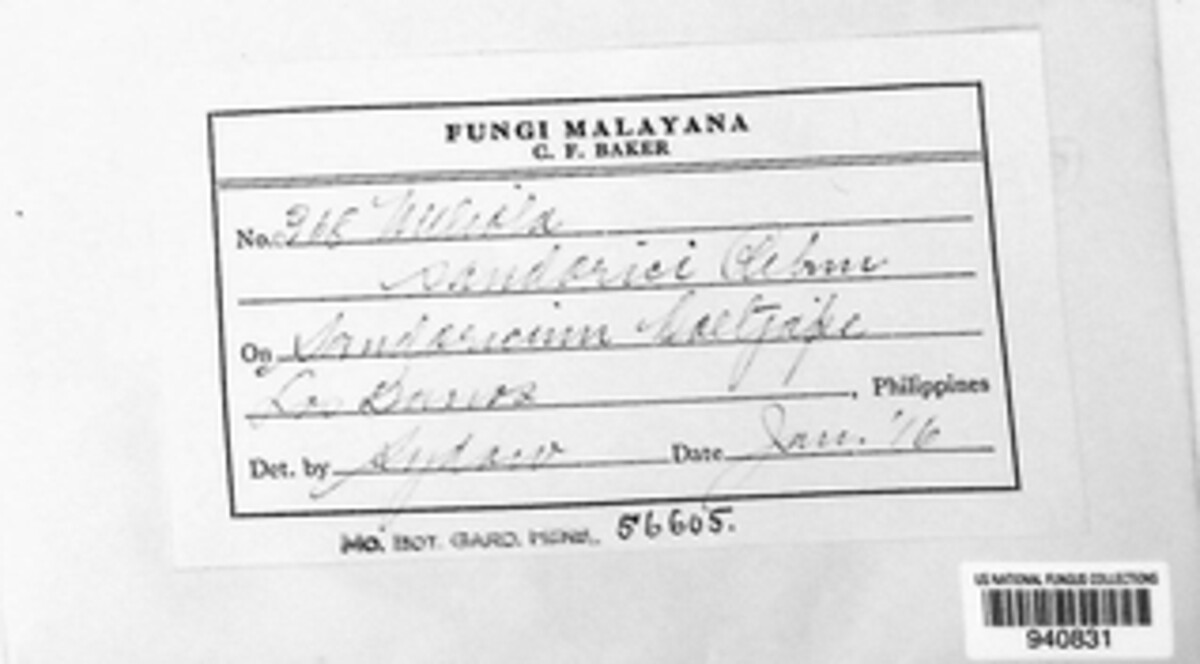 FUNGI MALAYANA
C. F. BAKER
No. 268 Meliola
sandorici Rehm
On Sandoricum Koetjape
Los Banos, Philippines
Det. by Sydow Date Jan. '16
MO. BOT. GARD. HERB. 56605.
US NATIONAL FUNGUS COLLECTIONS
940831